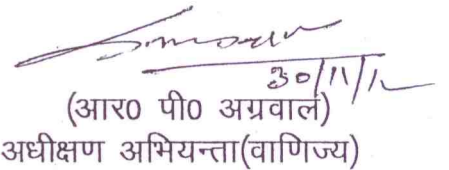 30/11/12
(आर0 पी0 अग्रवाल)
अधीक्षण अभियन्ता(वाणिज्य)